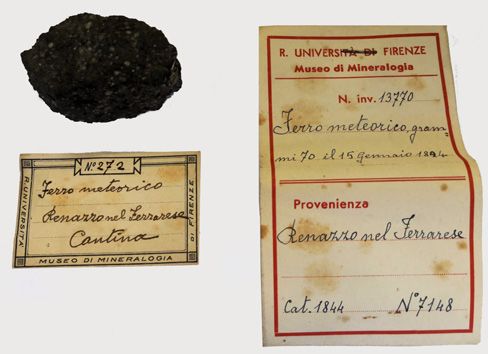 Nº 272
Ferro meteorico
Renazzo nel Ferrarese
Cantina
R. UNIVERSITÀ
DI FIRENZE
MUSEO DI MINERALOGIA
R. UNIVERSITÀ DI FIRENZE
Museo di Mineralogia
N. inv. 13770
Ferro meteorico, gram=
mi 70 il 15 Gennaio 1824
Provenienza
Renazzo nel Ferrarese
Cat. 1844 Nº 7148